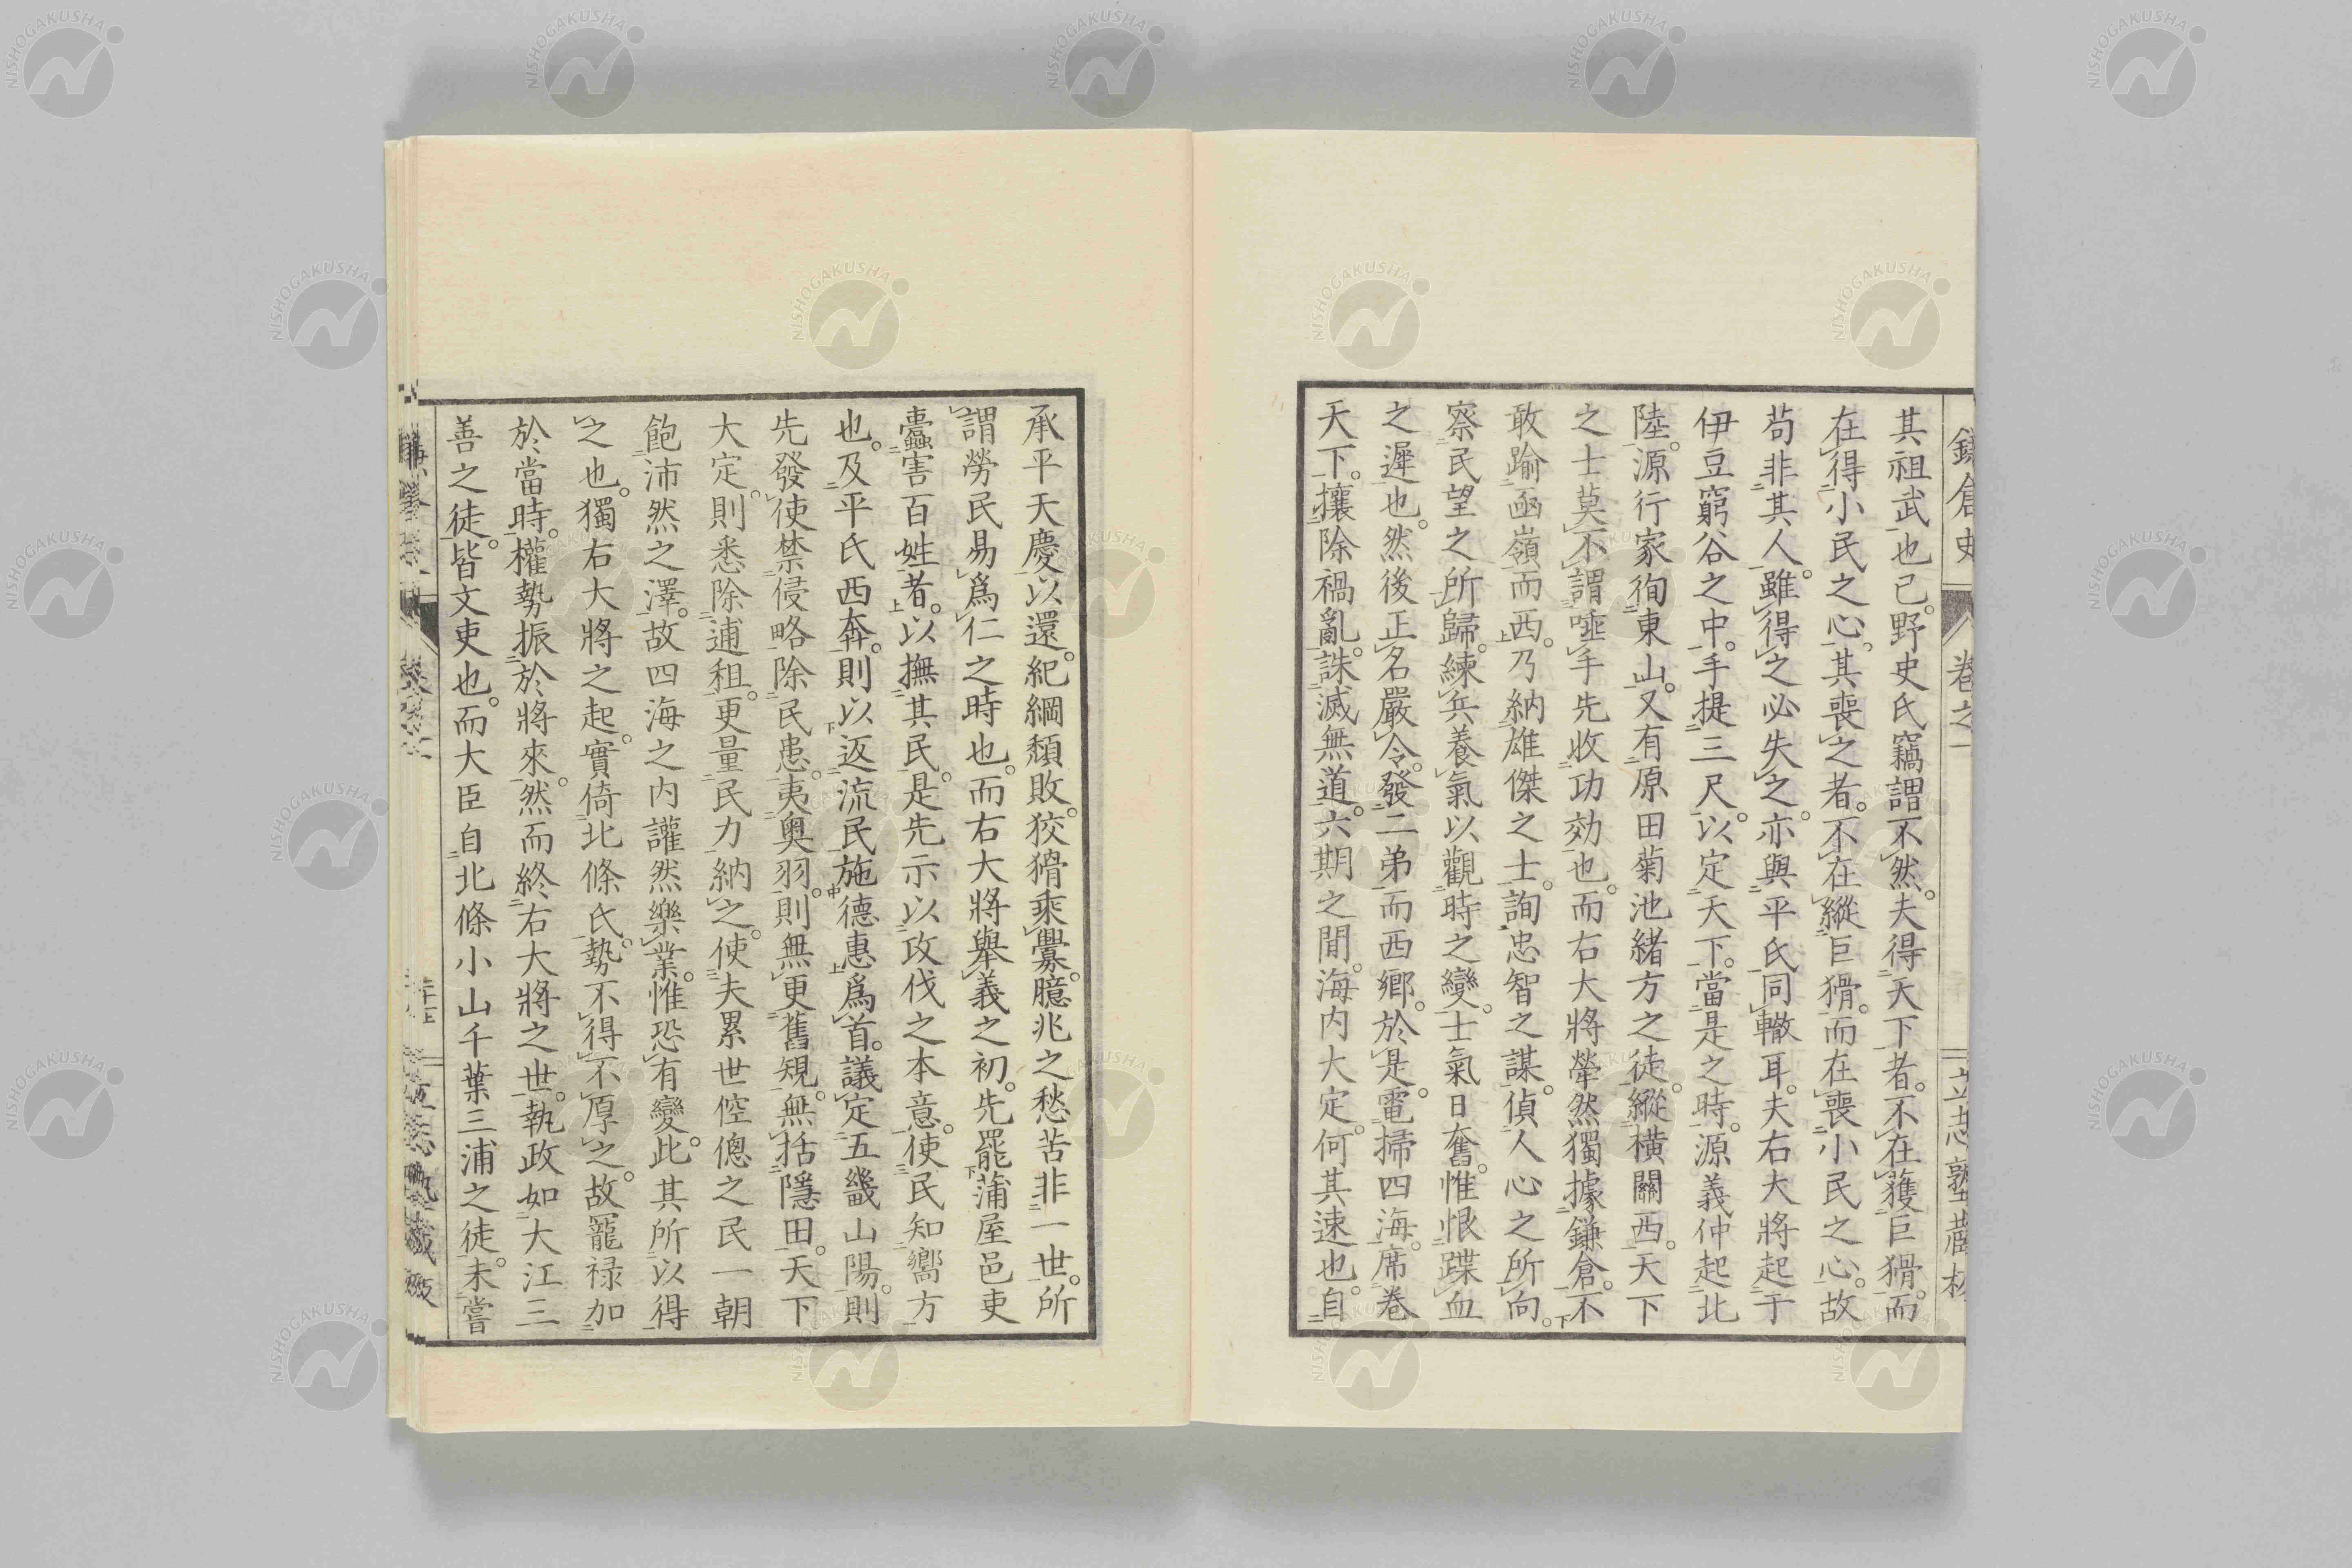 鎌倉史 卷之一
其祖武也已。野史氏竊謂不然。夫得天下者。不在獲巨猾。而
在得小民之心。其喪之者。不在縱巨猾。而在喪小民之心。故
苟非其人。雖得之必失之。亦與平氏同轍耳。夫右大將起于
伊豆窮谷之中。手提三尺。以定天下。當是之時。源義仲起北
陸。源行家徇東山。又有原田菊池緒方之徒。縱橫關西。天下
之士莫不謂唾手先收功効也。而右大將犖然獨據鎌倉。不
敢踰函嶺而西。乃納雄傑之士。詢忠智之謀。偵人心之所向。
察民望之所歸。練兵養氣以觀時之變。士氣日奮。惟恨蹀血
之遲也。然後正名嚴令。發二弟而西鄉。於是。電掃四海。席卷
天下。攘除禍亂。誅滅無道。六期之間。海内大定。何其速也。自
承平天慶以還。紀綱頽敗。狡猾乘釁。億兆之愁苦非一世。所
謂勞民易爲仁之時也。而右大將舉義之初。先罷蒲屋邑吏
蠹害百姓者。以撫其民。是先示以攻伐之本意。使民知嚮方
也。及平氏西奔。則以返流民施德惠爲首。議定五畿山陽。則
先發使禁侵略除民患。夷奥羽。則無更舊規。無括隱田。天下
大定。則悉除逋租。更量民力納之。使夫累世倥傯之民一朝
飽沛然之澤。故四海之内讙然樂業。惟恐有變。此其所以得
之也。獨右大將之起。實倚北條氏。勢不得不厚之。故寵禄加
於當時。權勢振於將來。然而終右大將之世。執政如大江三
善之徒。皆文吏也。而大臣自北條小山千葉三浦之徒。未嘗